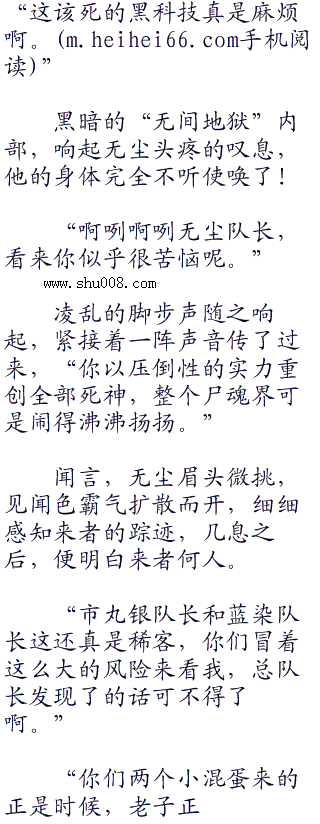 “这该死的黑科技真是麻烦
啊。(m.heihei66.com手机阅
读)”
黑暗的“无间地狱”内
部，响起无尘头疼的叹息，
他的身体完全不听使唤了！
“啊咧啊咧无尘队长，
看来你似乎很苦恼呢。”
www.shu008.com
凌乱的脚步声随之响
起，紧接着一阵声音传了过
来，“你以压倒性的实力重
创全部死神，整个尸魂界可
是闹得沸沸扬扬。”
闻言，无尘眉头微挑，
见闻色霸气扩散而开，细细
感知来者的踪迹，几息之
后，便明白来者何人。
“市丸银队长和蓝染队
长这还真是稀客，你们冒着
这么大的风险来看我，总队
长发现了的话可不得了
啊。”
“你们两个小混蛋来的
正是时候，老子正